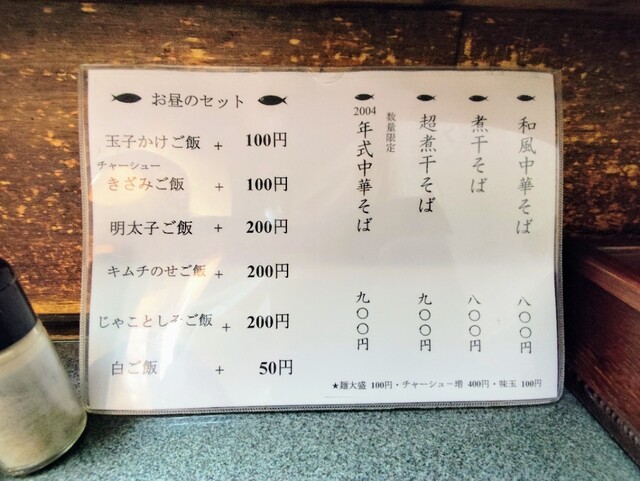 お昼のセット
玉子かけご飯 + 100円
チャーシュー
きざみご飯 + 100円
明太子ご飯 + 200円
キムチのせご飯 + 200円
じゃことしそご飯 + 200円
白ご飯 + 50円
和風中華そば 八〇〇円
煮干そば 八〇〇円
超煮干そば 九〇〇円
数量限定
2004年式中華そば 九〇〇円
★麺大盛 100円・チャーシュー増 400円・味玉 100円